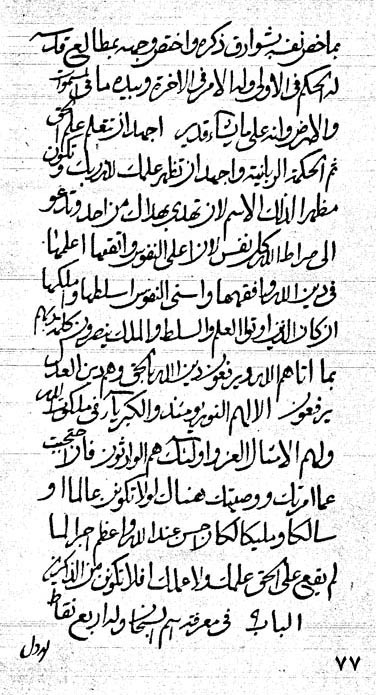 بما خص نفسه بشوارق ذكره واختص وجهه بمطالع قدسه
له الحكم في الاولى وله الامر في الاخرة وبيده ما في السموات
والارض وانه على ما يشاء قدير اجهد ان تتعلم علم الحق
ثم الحكمة الربانية واجهد ان تظهر علمك لله ربك وتكون
مظهرا لذلك الاسم لان تهدي بهداك من احد وتدعو
الى صراط الله كل نفس لان اعلى النفوس واتقيها اعلمها
في دين الله وافقهها واسنى النفوس اسلطها واملكها
ان كان الذين اوتوا العلم والسلطة والملك ينصرون كلمة ربهم
بما اتاهم الله ويرفعون دين الله بالحق وهم دين العدل
يرفعون الا لهم النور يومئذ والكبرياء في ملكوت الله
ولهم الامثال العز اولئك هم الوارثون فان احتجبت
عما امرتك ووصيتك هنالك لو لا تكون عالما او
سالكا ومليكا لكان احسن عند الله واعظم اجرا لما
لم يقع على الحق علمك ولا عملك افلا تكونن من الذاكرين
الباب في معرفة اسم السبحان وله اربع نقاط
۷۷